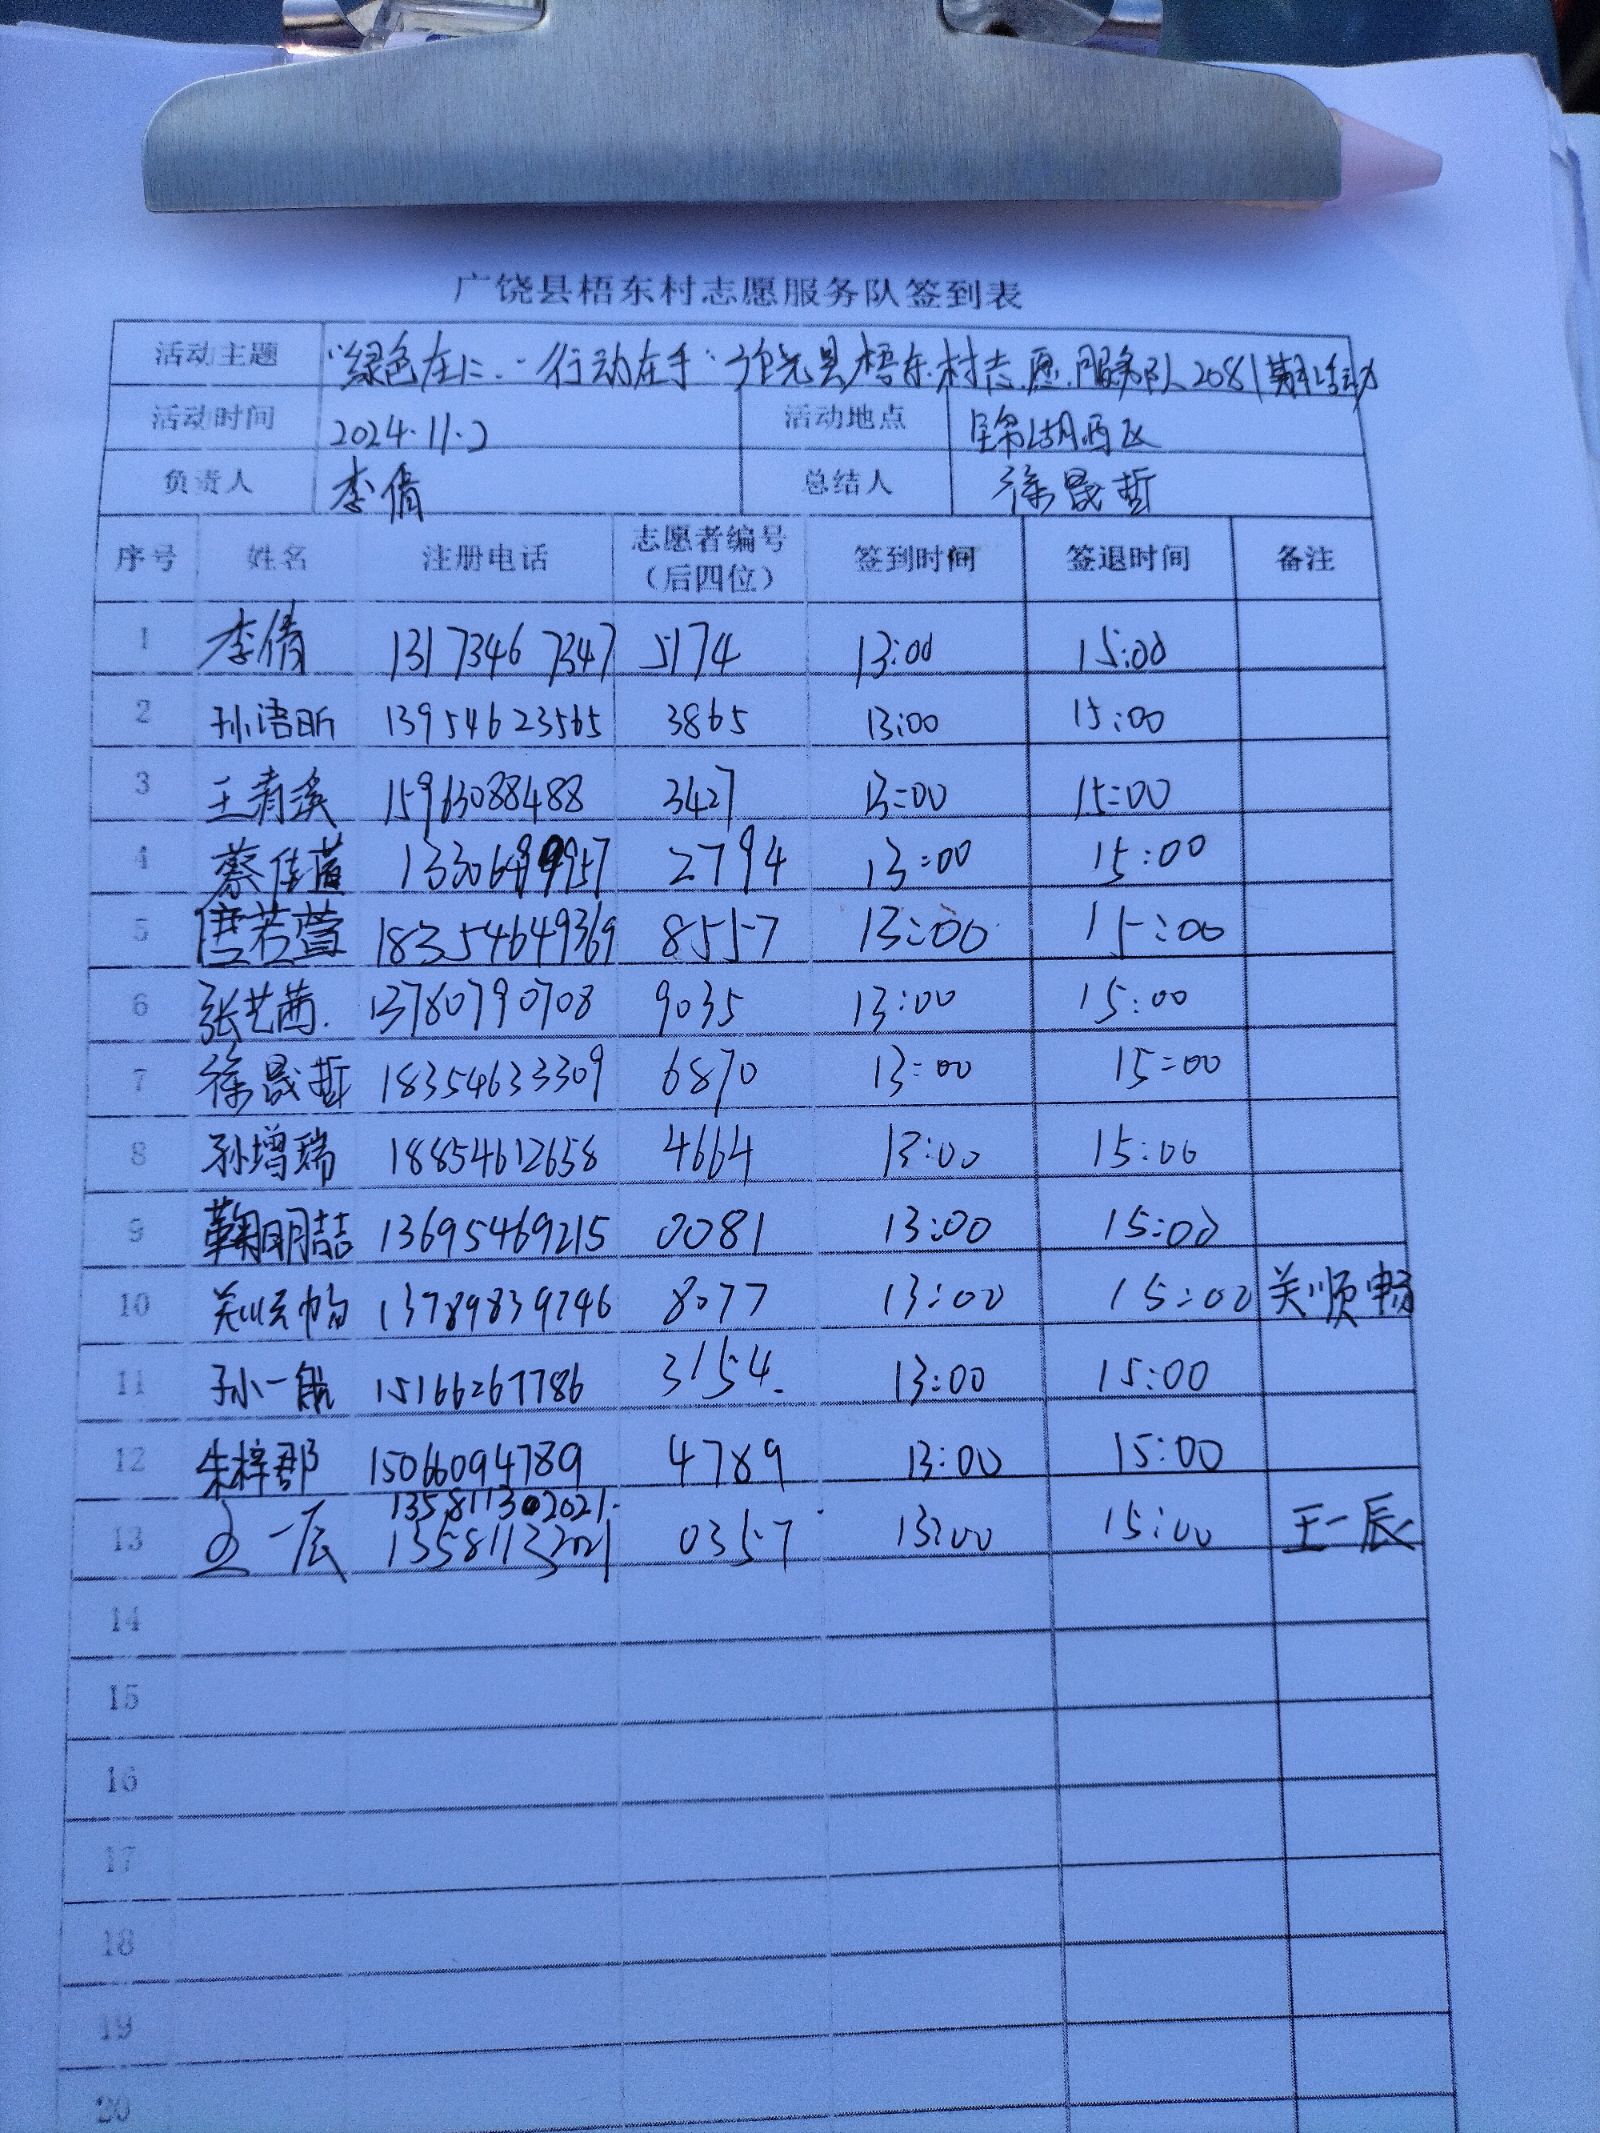 广饶县梧东村志愿服务队签到表
活动主题 "绿色在心·行动在手"广饶县梧东村志愿服务队2081期活动
活动时间 2024.11.2 活动地点 锦湖西区
负责人 李倩 总结人 徐晟哲
序号 姓名 注册电话 志愿者编号（后四位） 签到时间 签退时间 备注
1 李倩 13173467347 5174 13:00 15:00
2 孙语昕 13954623565 3865 13:00 15:00
3 王清溪 15963088488 3427 13:00 15:00
4 蔡佳 2794 13:00 15:00
5 唐若萱 18354649369 8557 13:00 15:00
6 张艺茜 13780790708 9035 13:00 15:00
7 徐晟哲 18354633309 6870 13:00 15:00
8 孙增瑞 18854612658 4664 13:00 15:00
9 鞠明喆 13695469215 0081 13:00 15:00
10 关顺畅 13789839746 8077 13:00 15:00 关顺畅
11 孙一航 15166267786 3154. 13:00 15:00
12 朱梓郡 15066094789 4789 13:00 15:00
13581132021.
13 王一辰 13581132021 0357 13:00 15:00 王一辰
14
15
16
17
18
19
20